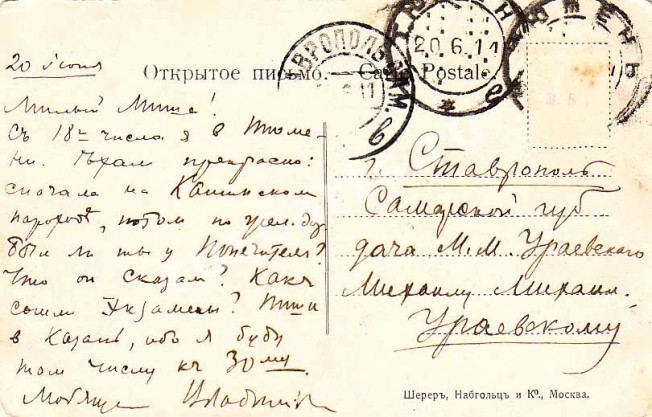 20 Июня
Открытое письмо. — Carte Postale.
Милый Миша!
Съ 18го числа я в Тюме-
ни. Ѣхал прекрасно:
сначала на Кашинском
пароходѣ, потом по жел. дор.
Был ли ты у Попечителя?
Что он сказал? Какъ
сошли экзамены? Пиши
в Казань, ибо я буду
там числу къ 30му.
Любящ Владимiр
г. Ставрополь
Самарской губ
дача М. М. Ураевского
Михаилу Михаил.
Ураевскому
Шереръ, Набгольцъ и Ко., Москва.
СТАВРОПОЛЬ САМ.
20.6.11
ТЮМЕНЬ